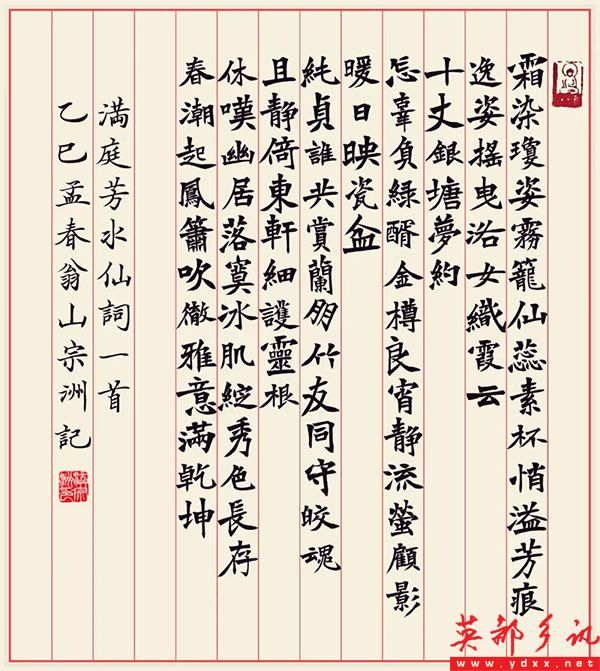 霜染瓊姿霧籠仙蕊素杯悄溢芳痕
逸姿搖曳洛女織霞云
十丈銀塘夢約
怎辜負綠醑金樽良宵静流螢顧影
暖日映瓷盆
純貞誰共賞蘭朋竹友同守皎魂
且静倚東軒細護靈根
休嘆幽居落寞冰肌綻秀色長存
春潮起鳳簫吹徹雅意滿乾坤
満庭芳水仙詞一首
乙巳孟春翁山宗洲記
英都乡讯
www.ydxx.net